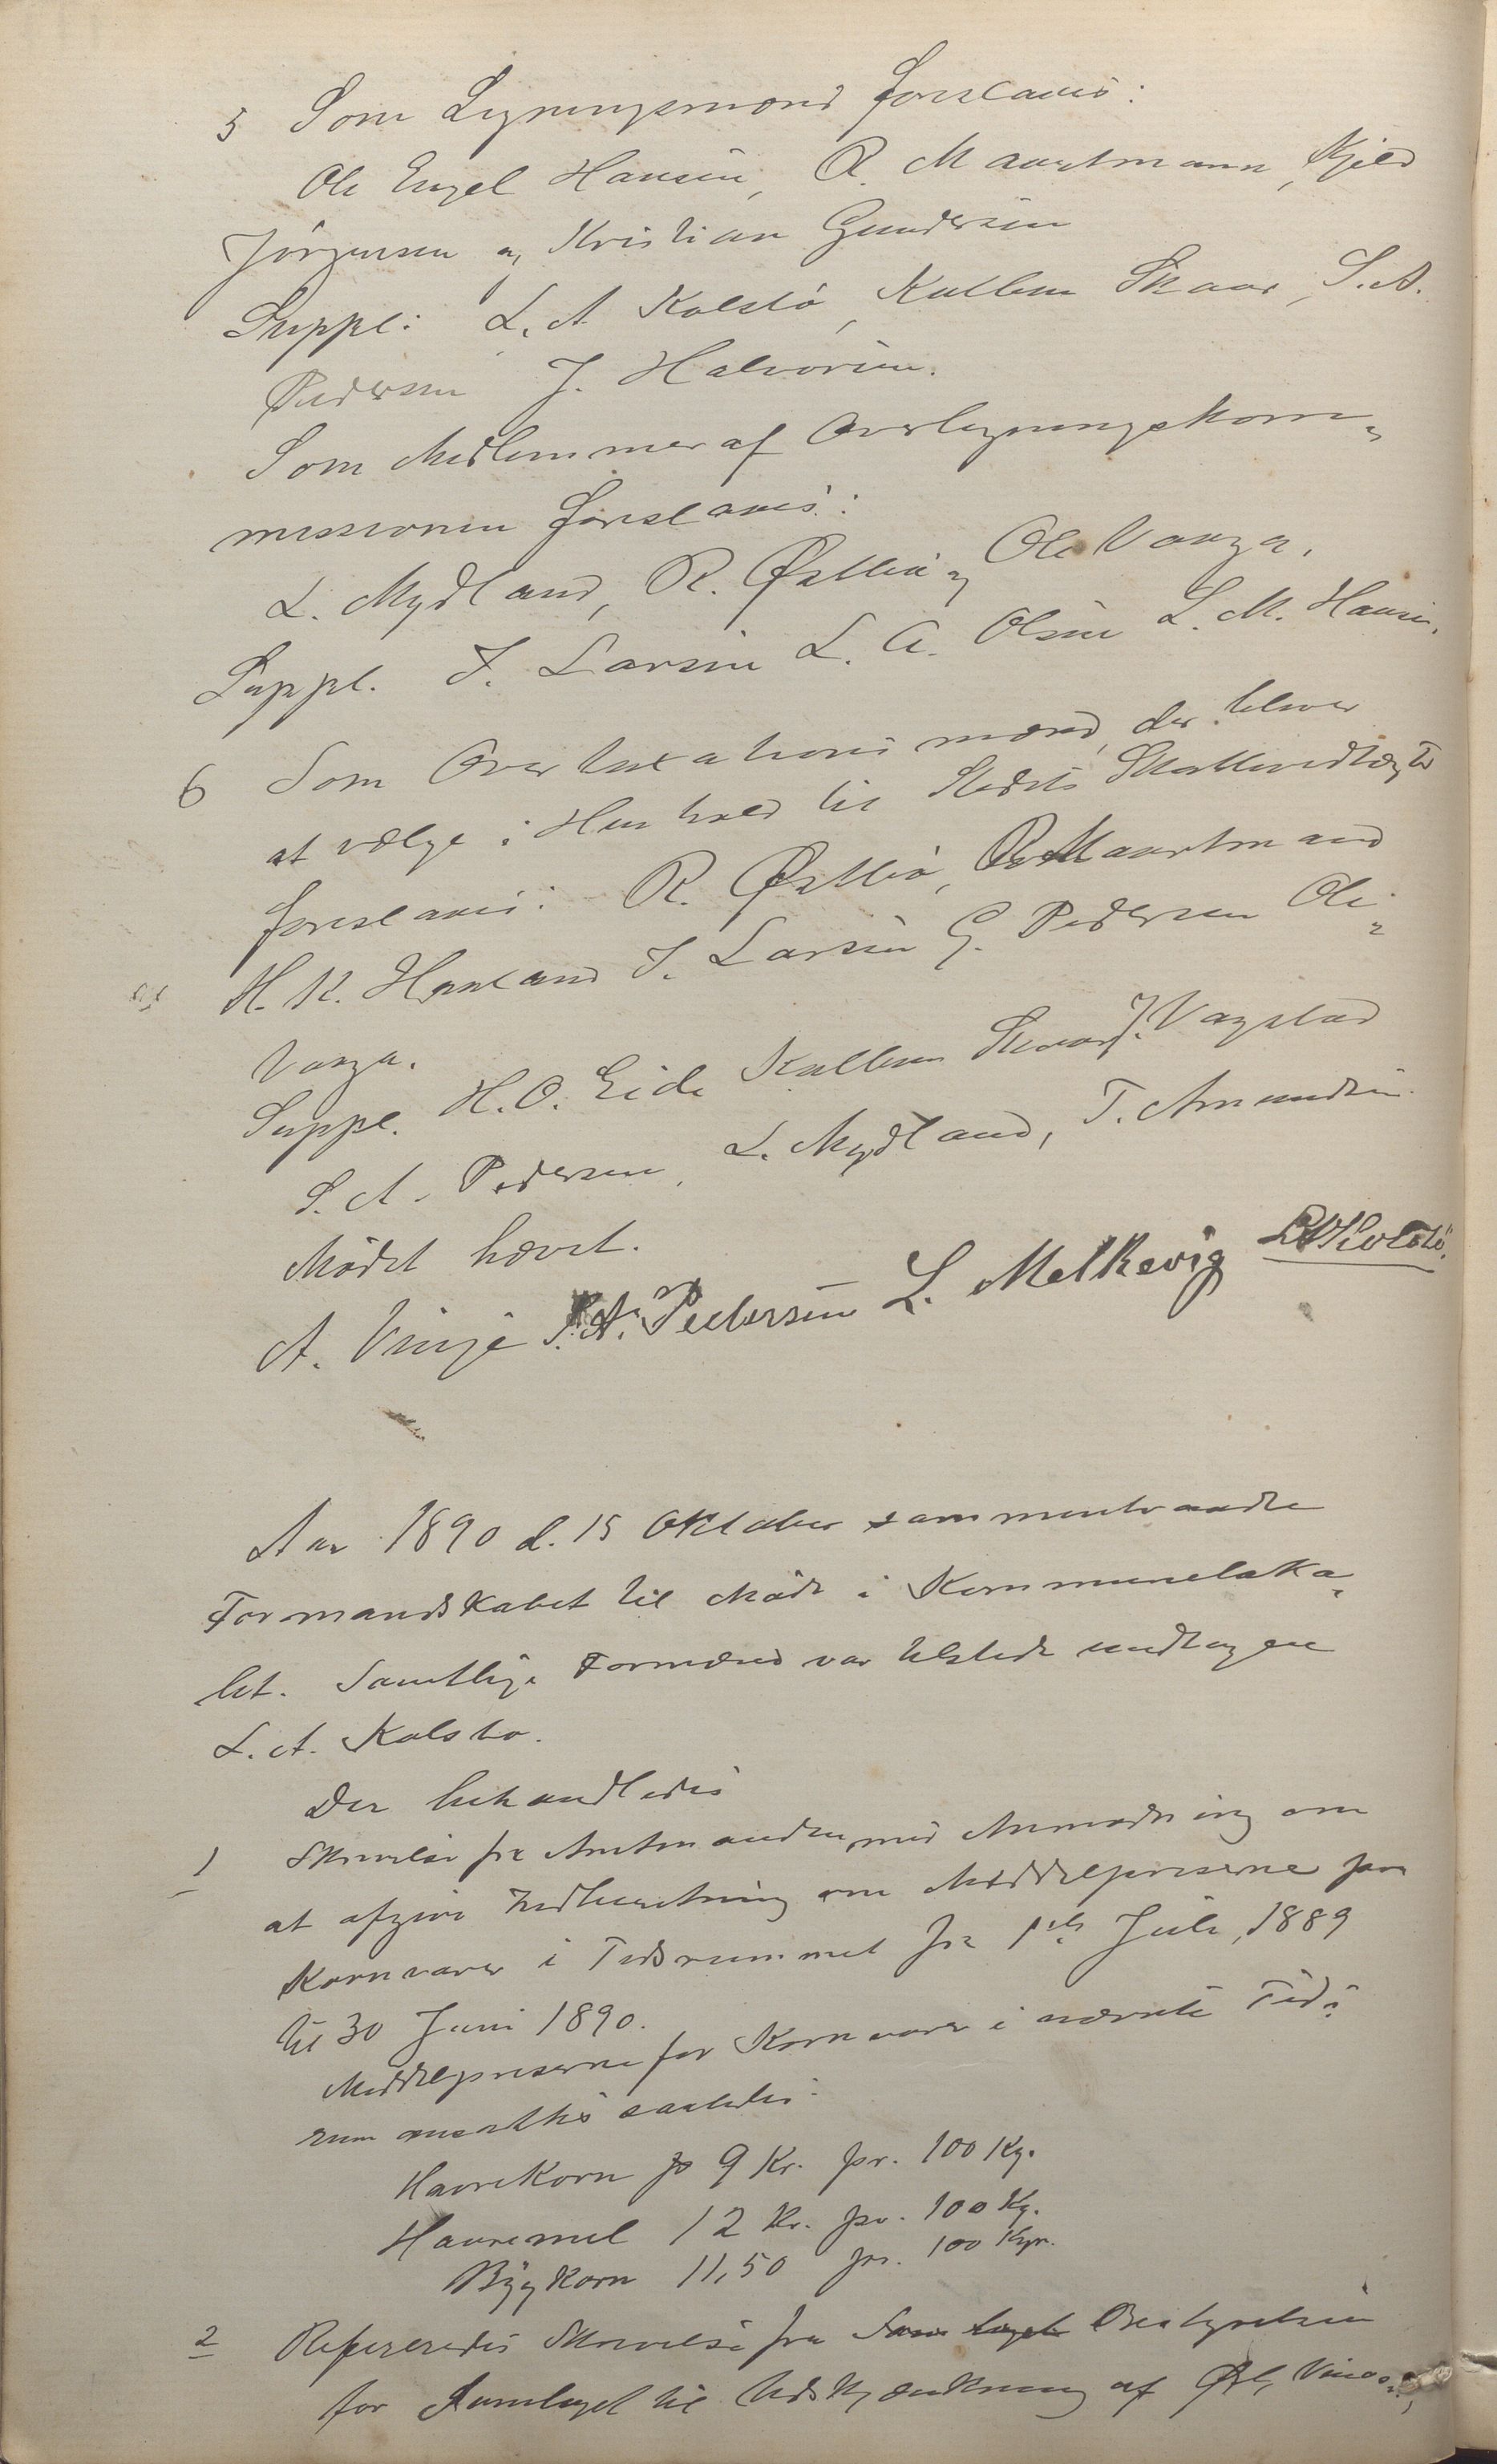 5 Som Ligningsmænd foreslaaes:
Ole Engel Hansen, R. Maartmann, Kjeld
Jörgensen og Kristian Gundersen
Suppl: L. A. Kolstö, Kolben Skaar, S. A.
Pedersen J. Halvorsen.
Som Medlemmer af Overligningskom-
missionen foreslaaes:
L. Mydland, R. Østbö og Ole Vaaga.
Suppl. J. Larsen L. A. Olsen L. M. Hansen.
6 Som Overtaxationsmænd, der bliver
at vælge i Henhold til Stedets Skattevedtægter
foreslaaes: R. Østbö, R. Maartmand
H. K. Haaland J. Larsen G. Pedersen Ole
Vaaga.
Suppl. H. O. Eide Kolben Skaar J. Vagstad
S. A. Pedersen, L. Mydland, T. Amundsen.
Mödet hævet.
A. Vinje S. A. Pedersen L. Melkevig LAKolstö.
Aar 1890 d. 15 Oktober sammentraadte
Formandskabet til Möde i Kommuneloka-
let. Samtlige Formænd var tilstede undtagen
L. A. Kolsto.
Der behandledes
1 Skrivelse fra Amtmanden med Anmodning om
at afgive Indberetning om Middelpriserne paa
Kornvarer i Tidsrummet fra 1ste Juli 1889
til 30 Juni 1890.
Middelpriserne for Kornvarer i nævnte Tids-
rum ansattes saaledes:
Havrekorn 9 Kr. pr. 100 Kg.
Havremel 12 Kr. pr. 100 Kg.
Bygkorn 11,50 pr. 100 Kgr.
2 Refereredes Skrivelse fra Samlaget Bestyrelsen
for Samlaget til Udskjænkning af Øl, Vin